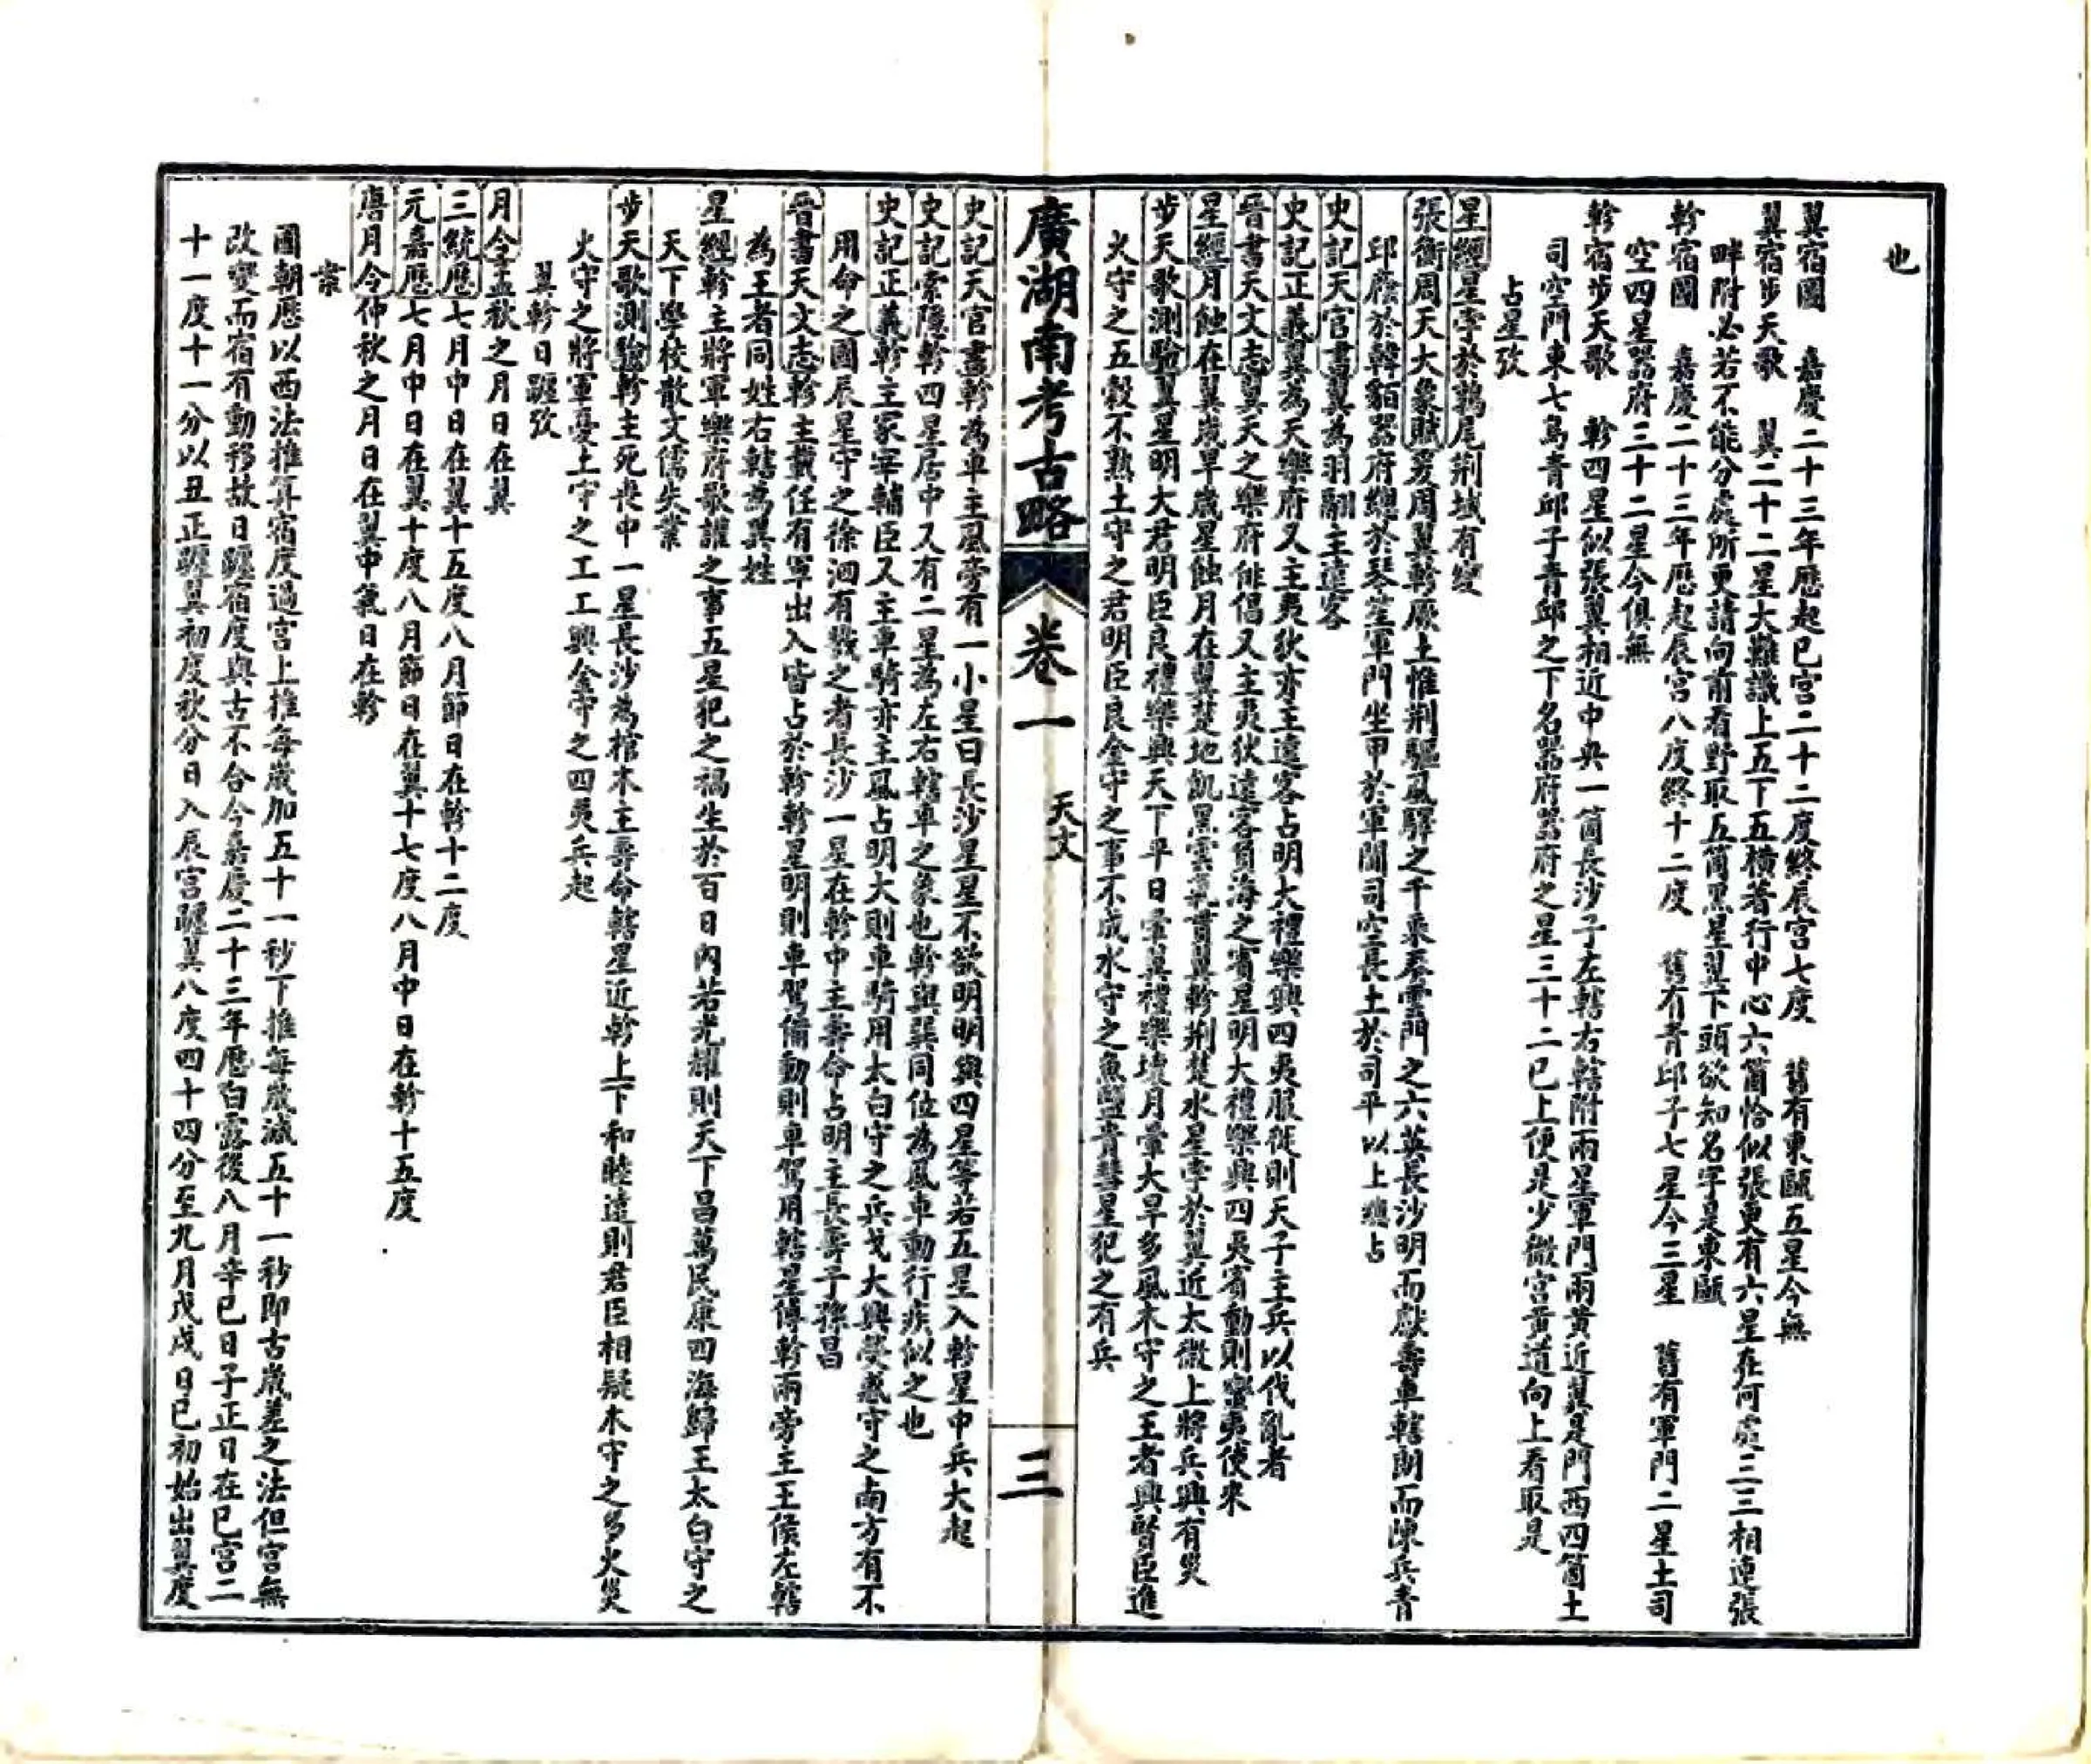 也
翼宿圖　嘉慶二十三年歷起巳宮二十二度終辰宮七度　舊有東甌五星今無
翼宿步天歌　翼二十二星大難識上五下五橫著行中心六箇恰似張更有六星在何處三三相連張
畔附必若不能分處所更請向前看野取五箇黑星翼下頭欲知名字是東甌
軫宿圖　嘉慶二十三年歷起辰宮八度終十二度　舊有青邱子七星今三星　舊有軍門二星土司
空四星器府三十二星今俱無
軫宿步天歌　軫四星似張翼相近中央一箇長沙子左轄右轄附兩星軍門兩黃近翼是門西四箇土
司空門東七烏青邱子青邱之下名器府器府之星三十二已上便是少微宮黃道向上看取是
占星攷
星經星孛於鶉尾荊域有變
張衡周天大象賦爰周翼軫厥土惟荊驅風驛之千乘奏雲門之六英長沙明而獻壽車轄朗而陳兵青
邱蔭於韓貊器府總於琴笙軍門坐甲於軍閫司空長土於司平以上總占
史記天官書翼為羽翮主遠客
史記正義翼為天樂府又主夷狄亦主遠客占明大禮樂興四夷服徙則天子主兵以伐亂者
晉書天文志翼天之樂府俳倡又主夷狄遠客負海之賓星明大禮樂興四夷賓動則蠻夷使來
星經月蝕在翼歲旱歲星蝕月在翼楚地飢黑雲氣貫翼軫荊楚水星孛於翼近太微上將兵興有災
步天歌測驗翼星明大君明臣良禮樂興天下平日暈翼禮樂壞月暈大旱多風木守之王者興賢臣進
火守之五穀不熟土守之君明臣良金守之事不成水守之魚鹽貴彗星犯之有兵
廣湖南考古略
卷一　天文
三
史記天官書軫為車主風旁有一小星曰長沙星星不欲明明與四星等若五星入軫星中兵大起
史記索隱軫四星居中又有二星為左右轄車之象也軫與巽同位為風車動行疾似之也
史記正義軫主冢宰輔臣又主車騎亦主風占明大則車騎用太白守之兵戈大興熒惑守之南方有不
用命之國辰星守之徐泗有戮之者長沙一星在軫中主壽命占明主長壽子孫昌
晉書天文志軫主載任有軍出入皆占於軫軫星明則車駕備動則車駕用轄星傅軫兩旁主王侯左轄
為王者同姓右轄為異姓
星經軫主將軍樂府歌讙之事五星犯之禍生於百日內若光耀則天下昌萬民康四海歸王太白守之
天下學校散文儒失業
步天歌測驗軫主死喪中一星長沙為棺木主壽命轄星近軫上下和睦遠則君臣相疑木守之多火災
火守之將軍憂土守之工工興金守之四夷兵起
翼軫日躔攷
月令孟秋之月日在翼
三統歷七月中日在翼十五度八月節日在軫十二度
元嘉歷七月中日在翼十度八月節日在翼十七度八月中日在軫十五度
唐月令仲秋之月日在翼中氣日在軫
案
國朝歷以西法推算宿度過宮上推每歲加五十一秒下推每歲減五十一秒即古歲差之法但宮無
改變而宿有動移故日躔宿度與古不合今嘉慶二十三年歷白露後八月辛巳日子正日在巳宮二
十一度十一分以丑正躔翼初度秋分日入辰宮躔翼八度四十四分至九月戊戌日巳初始出翼度